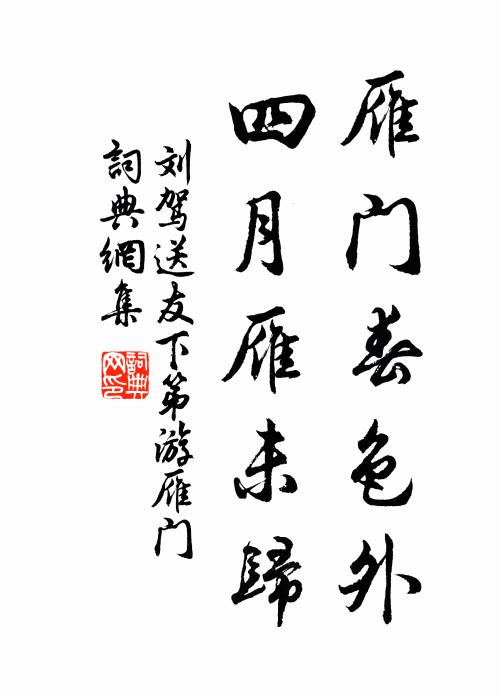 雁门春色外
四月雁未歸
刘驾送友下第游雁门
詞典網集
詞典网印